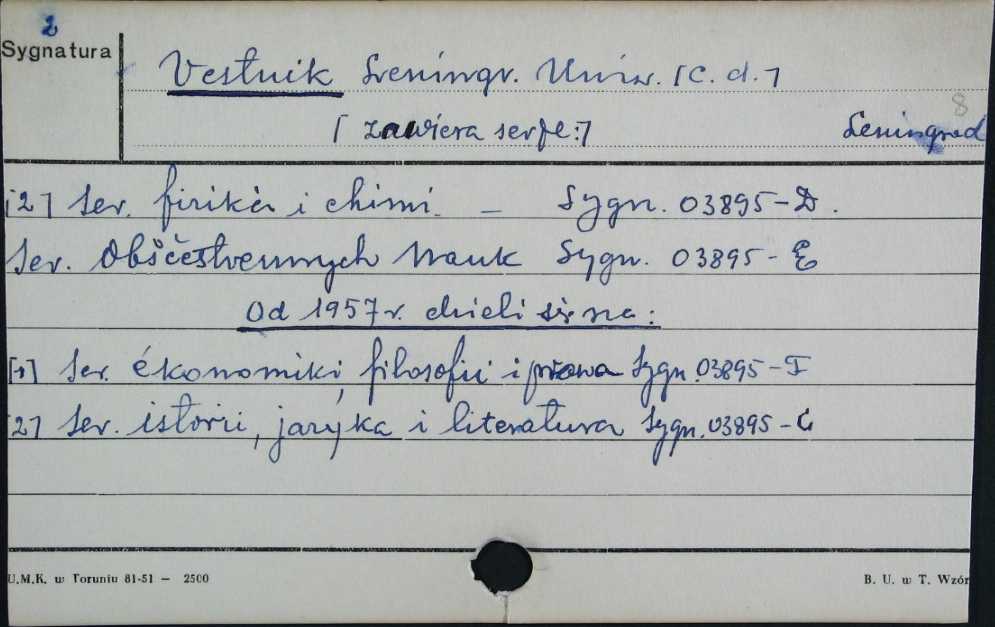 2
Sygnatura
Vestnik Leningr. Univ. [C. d.]
8
[zawiera serje:] Leningrad
[2] Ser. fiziki i chimi. — Sygn. 03895-D.
Ser. Obščestvennych Nauk Sygn. 03895-E
Od 1957 r. dzieli się na:
[1] Ser. ékonomiki, filosofii i prava Sygn. 03895-F
[2] Ser. istorii, jazyka i literatura Sygn. 03895-G
U.M.K. w Toruniu 81-51 — 2500
B. U. w T. Wzór